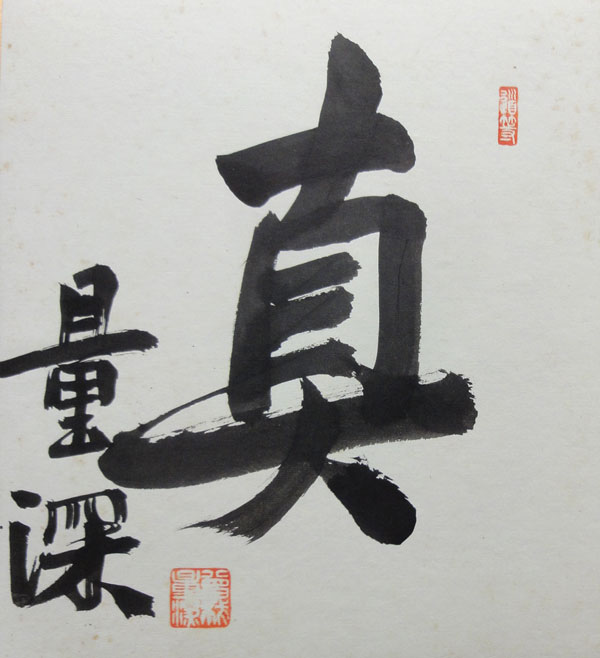 真
量深